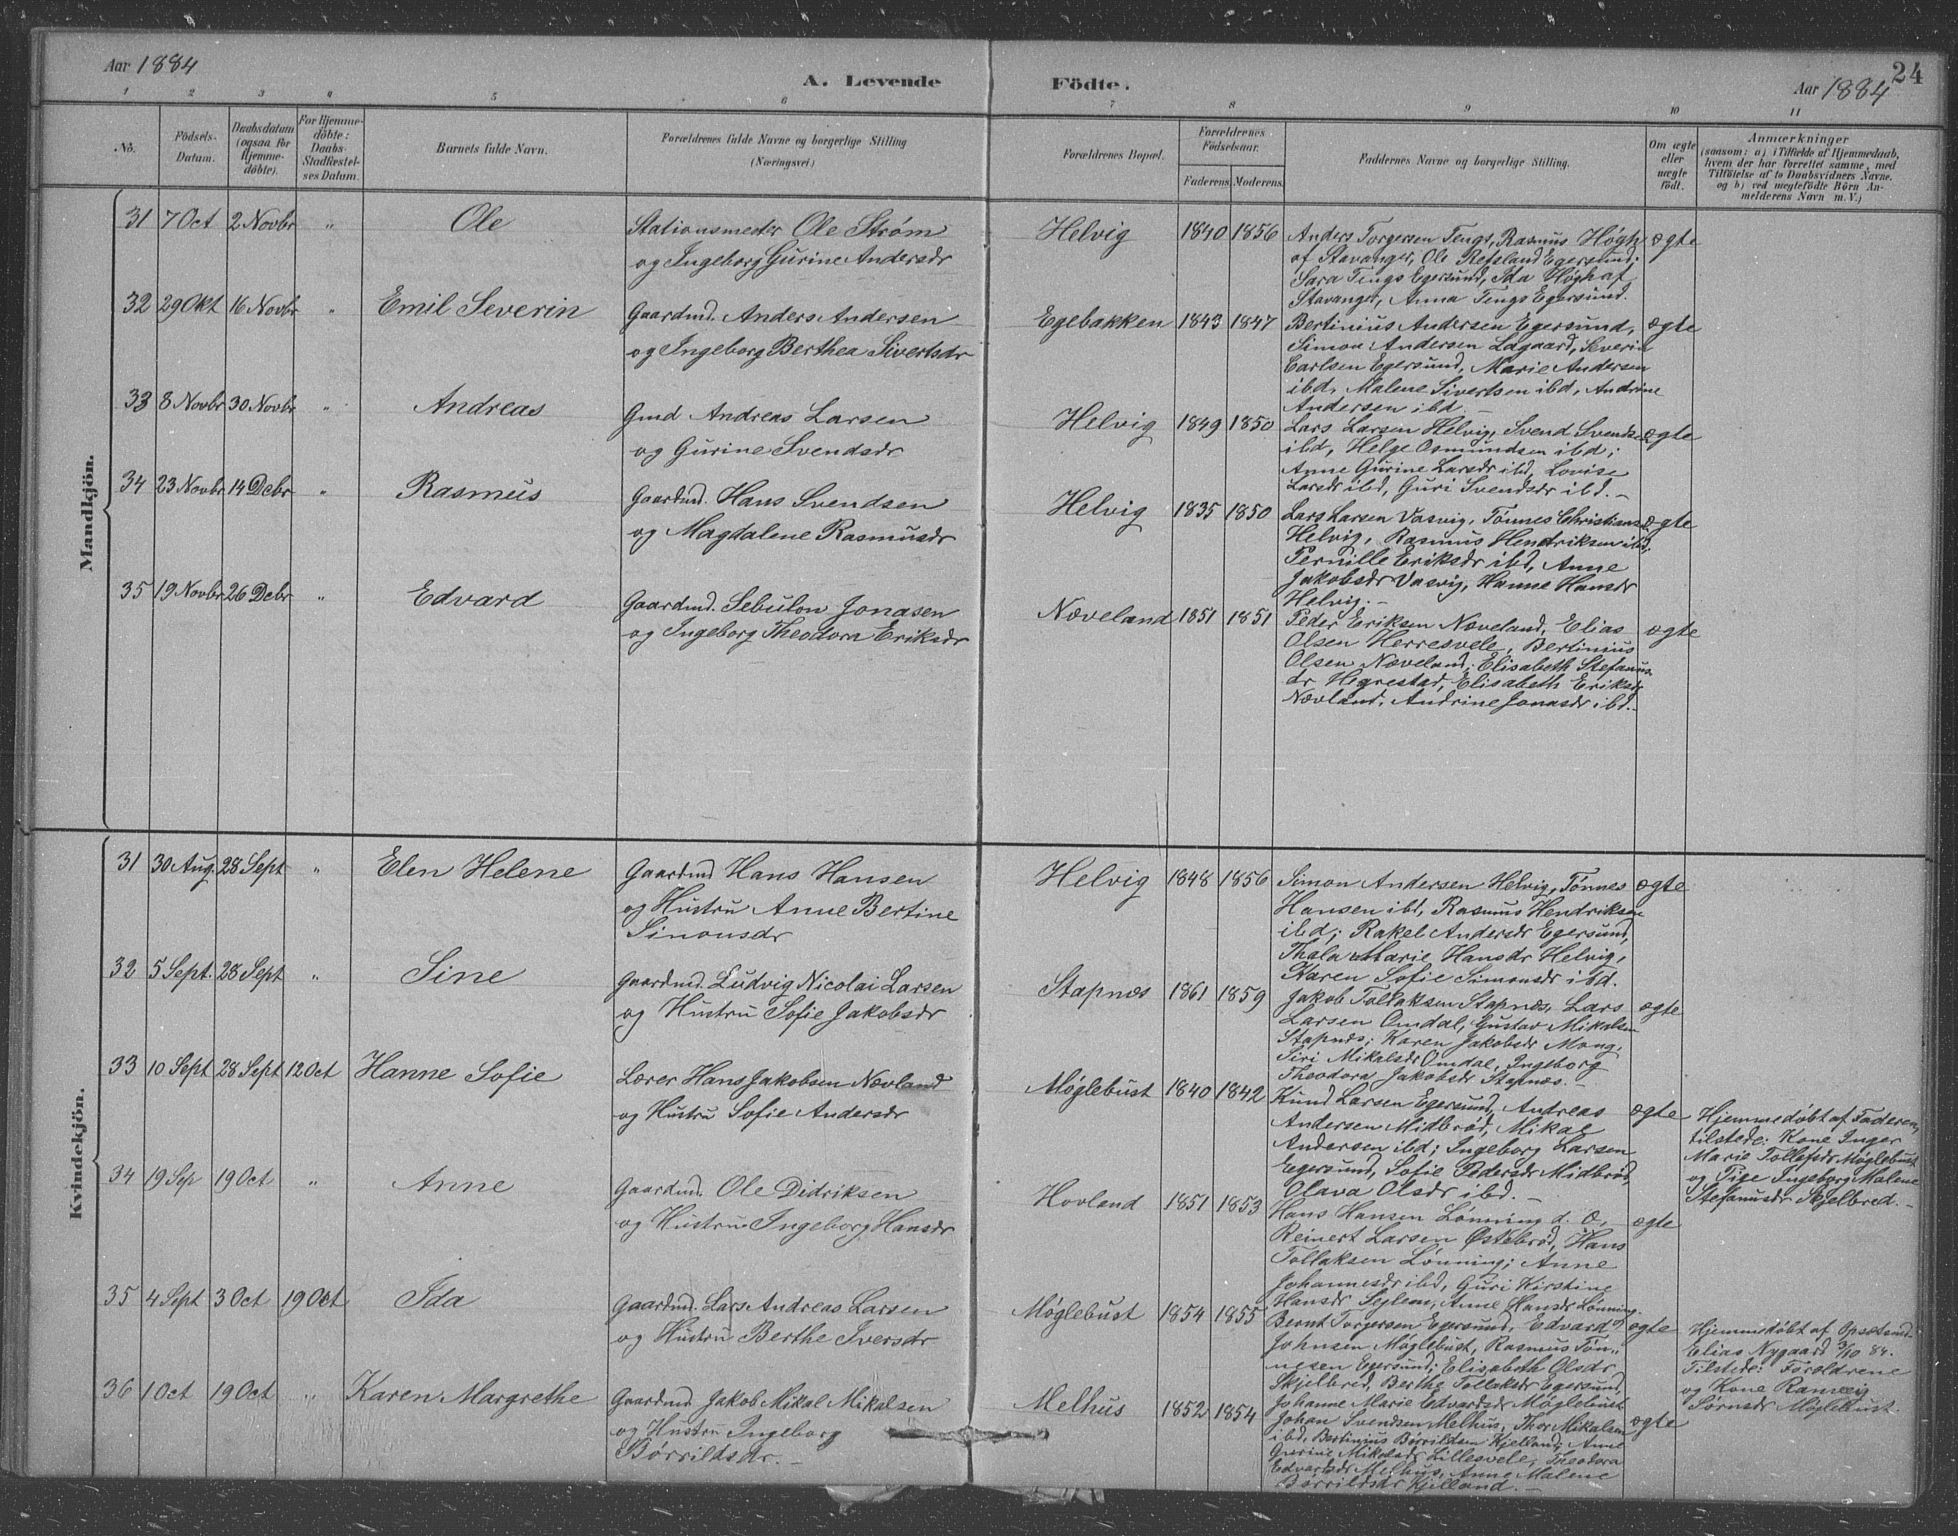 Aar 1884
A. Levende Födte.
Aar 1884
24
1 2 3 4 5 6 7 8 9 10 11
No.
Födsels-Datum.
Daabsdatum (ogsaa for Hjemme-döbte).
For Hjemme-döbte: Daabs-Stadfæstel-ses Datum.
Barnets fulde Navn.
Forældrenes fulde Navne og borgerlige Stilling
(Næringsvei.)
Forældrenes Bopæl.
Forældrenes Födselsaar.
Faderens. Moderens.
Faddernes Navne og borgerlige Stilling.
Om ægte eller uægte födt.
Anmærkninger
(saasom: a) i Tilfælde af Hjemmedaab,
hvem der har forrettet samme, med
Tilföielse af to Daabsvidners Navne,
og b) ved uægtefödte Börn An-
melderens Navn m. V.)
Mandkjön.
31 7 Oct 2 Novbr " Ole
Stationsmester Ole Strøm
og Ingeborg Gurine Andersdr
Helvig 1840 1856
Anders Torgersen Tengs, Rasmus Høgh
af Stavanger, Ole Refsland Egersund;
Sara Tengs Egersund, Ida Høgh af
Stavanger, Anna Tengs Egersund.
ægte
32 29 Okt 16 Novbr " Emil Severin
Gaardmd. Anders Andersen
og Ingeborg Berthea Sivertsdr
Egebakken 1843 1847
Bertinius Andersen Egersund,
Simon Andersen Lagaard, Severin
Carlsen Egersund, Marie Andersen
ibd, Malene Sivertsen ibd, Andrine
Andersen ibd.
ægte
33 8 Novbr 30 Novbr " Andreas
Gmd Andreas Larsen
og Gurine Svendsdr
Helvig 1849 1850
Lars Larsen Helvig, Svend Svends.
ibd, Helge Osmundsen ibd;
Anne Gurine Larsdr ibd, Lovise
Larsdr ibd, Guri Svendsdr ibd.
ægte
34 23 Novbr 14 Debr " Rasmus
Gaardmd. Hans Svendsen
og Magdalene Rasmusdr
Helvig 1835 1850
Lars Larsen Vasvig, Tønnes Christians.
Helvig, Rasmus Hendriksen ibd,
Pernille Eriksdr ibd, Anne
Jakobsdr Vasvig, Hanne Hansdr
Helvig.
ægte
35 19 Novbr 26 Debr " Edvard
Gaardmd. Sebulon Jonasen
og Ingeborg Theodora Eriksdr
Næveland 1851 1851
Peder Eriksen Næveland, Elias
Olsen Herresvele, Bertinius
Olsen Næveland; Elisabeth Stefanus
dr Hegrestad, Elisabeth Eriksdr
Nævland, Andrine Jonasdr ibd.
ægte
Kvindekjön.
31 30 Aug. 28 Sept " Elen Helene
Gaardmd Hans Hansen
og Hustru Anne Bertine
Simonsdr
Helvig 1848 1856
Simon Andersen Helvig, Tønnes
Hansen ibd, Rasmus Hendriksen
ibd; Rakel Andersdr Egersund,
Thala Marie Hansdr Helvig,
Karen Sofie Simonsdr ibd.
ægte
32 5 Sept. 28 Sept " Sine
Gaardmd. Ludvig Nicolai Larsen
og Hustru Sofie Jakobsdr
Stapnæs 1861 1859
Jakob Tollaksen Stapnæs, Lars
Larsen Omdal, Gustav Mikalsen
Stapnæs; Karen Jakobsdr Mong,
Siri Mikalsdr Omdal, Ingeborg
Theodora Jakobsdr Stapnæs.
ægte
33 10 Sept 28 Sept 12 Oct Hanne Sofie
Lærer Hans Jakobsen Nævland
og Hustru Sofie Andersdr
Møglebust 1840 1842
Knud Larsen Egersund, Andreas
Andersen Midbrød, Mikal
Andersen ibd; Ingeborg Larsen
Egersund, Sofie Pedersdr Midbrød,
Olava Olsdr ibd.
ægte
Hjemmedøbt af Faderen,
tilstede: Kone Inger
Marie Tollefsdr Møglebust
og Pige Ingeborg Malene
Stefanusdr Skjelbred.
34 19 Sep 19 Oct " Anne
Gaardmd. Ole Didriksen
og Hustru Ingeborg Hansdr
Hovland 1851 1853
Hans Hansen Lønning d. Æ,
Reinert Larsen Østebrød, Hans
Tollaksen Lønning; Anne
Johannesdr ibd, Guri Kirstine
Hansdr Sejlem, Anne Hansdr Lønning.
ægte
35 4 Sept 3 Oct 19 Oct Ida
Gaardmd. Lars Andreas Larsen
og Hustru Berthe Iversdr
Møglebust 1854 1855
Bernt Torgersen Egersund, Edvard
Johnsen Møglebust, Rasmus Tøn-
nesen Egersund; Elisabeth Olsdr
Skjelbred, Berthe Tollaksdr Egersund,
Johanne Marie Edvardsdr Møglebust
ægte
Hjemmedøbt af Opsetsmd
Elias Nygaard 3/10 84.
Tilstede: Forældrene
og Kone Ranveig
Sørnsdr Møglebust.
36 1 Oct 19 Oct " Karen Margrethe
Gaardmd Jakob Mikal Mikalsen
og Hustru Ingeborg
Børrildsdr.
Melhus 1852 1854
Johan Svendsen Melhus, Thor Mikalsen
ibd, Bertinius Børrildsen Kjelland; Anne
Gurine Mikalsdr Lillesvele, Theodora
Edvardsdr Melhus, Anne Malene
Børrildsdr Kjelland.
ægte